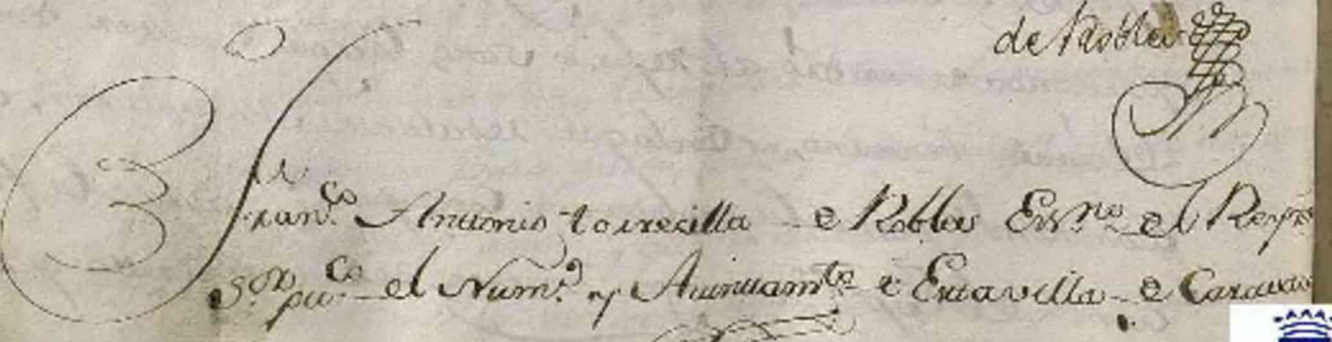 de Robles
Fran.co Antonio torrecilla de Robles Ess.no del Rey
S.or pu.co del Num.o y Aiuntam.to de Esta villa de Carava